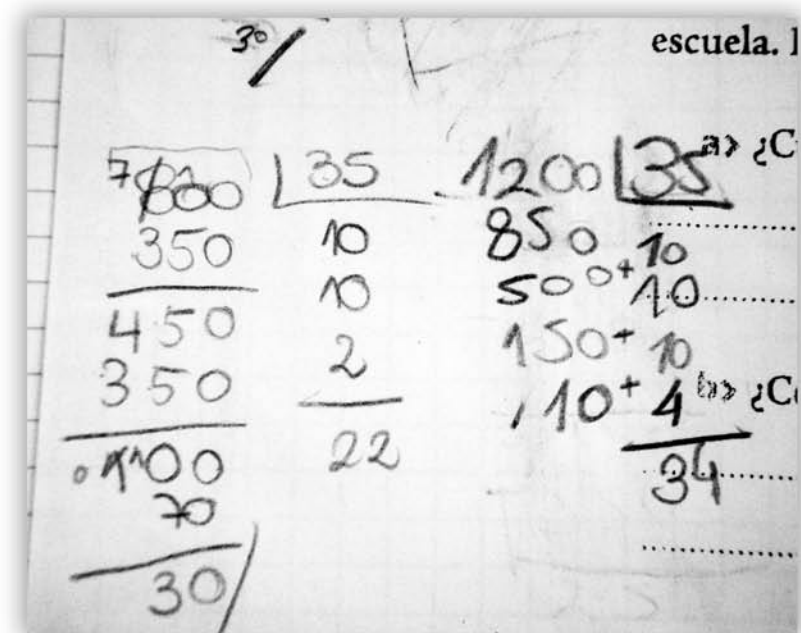 30/
escuela.
800 35
350 10
450 10
350 2
100 22
70
30/
1200 35
850 10
500 + 10
150 + 10
10 + 4
34
a> ¿C
b> ¿C